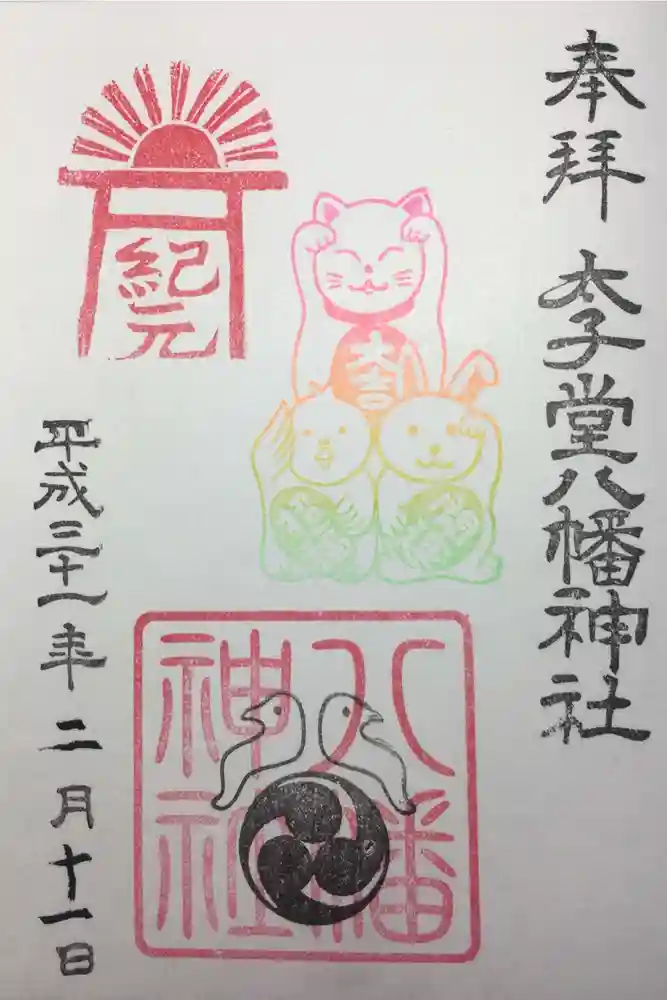 奉拝
太子堂八幡神社
紀元
吉
八幡
神社
平成三十一年二月十一日